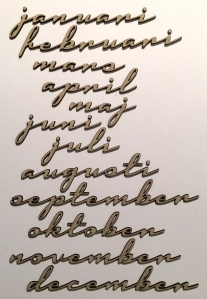 januari
februari
mars
april
maj
juni
juli
augusti
september
oktober
november
december